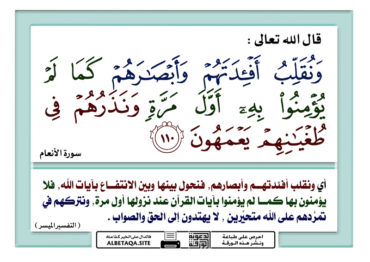 قال الله تعالى :
وَنُقَلِّبُ أَفْـِٔدَتَهُمْ وَأَبْصَٰرَهُمْ كَمَا لَمْ
يُؤْمِنُوا۟ بِهِۦٓ أَوَّلَ مَرَّةٍ وَنَذَرُهُمْ فِى
طُغْيَٰنِهِمْ يَعْمَهُونَ ١١٠
سورة الأنعام
أي ونقلب أفئدتهم وأبصارهم، فنحول بينها وبين الانتفاع بآيات الله، فلا
يؤمنون بها كما لم يؤمنوا بآيات القرآن عند نزولها أول مرة، ونتركهم في
تمرُّدهم على الله متحيِّرين ، لا يهتدون إلى الحق والصواب .
(التفسير الميسر)
احرص على طباعة
ونشر هذه الورقة
ALBETAQA.SITE